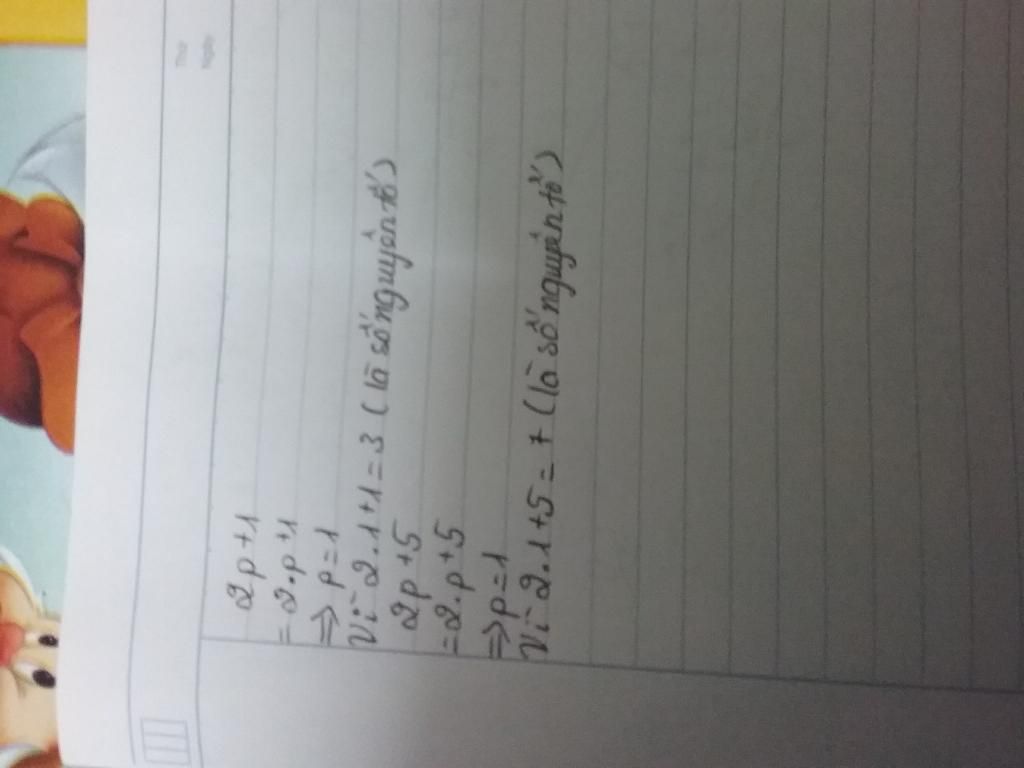 2p+1
= 2.p+1
=> p=1
Vì 2.1+1=3 (là số nguyên tố)
2p+5
=2.p+5
=> p=1
Vì 2.1+5=7 (là số nguyên tố)